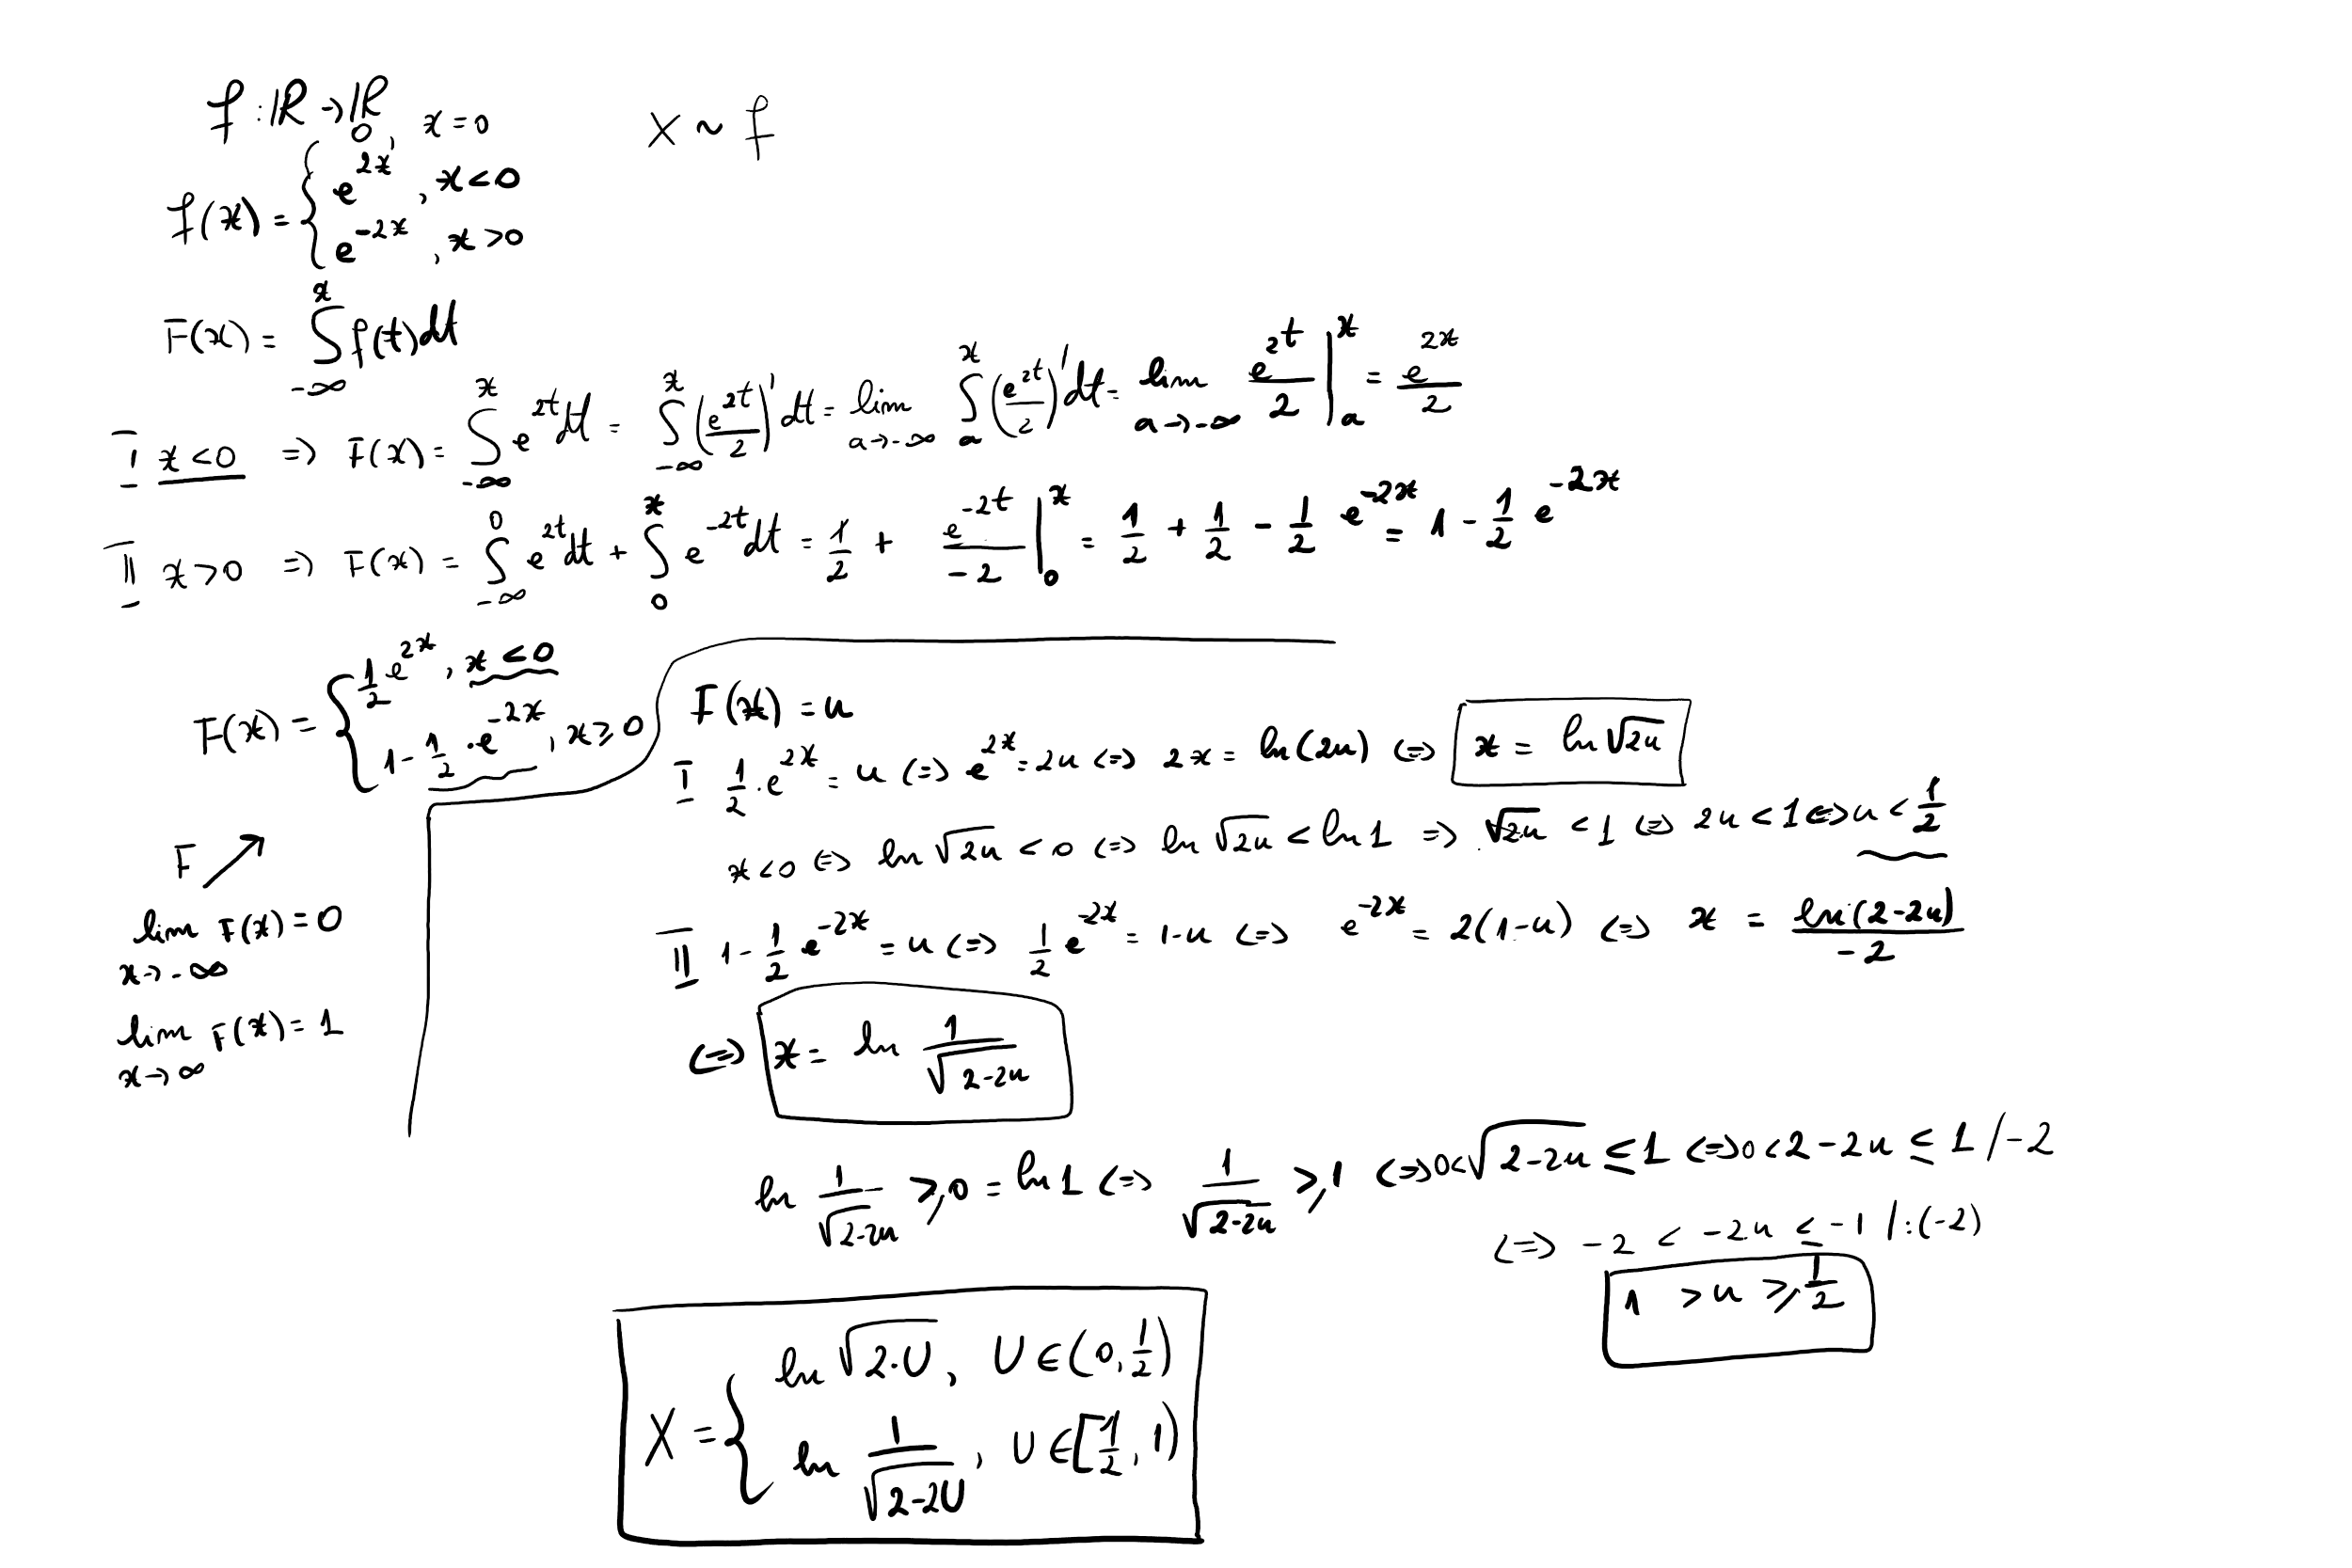 f : ℝ → ℝ
X ~ f
f(x) = { 0, x = 0
e^{2x}, x < 0
e^{-2x}, x > 0
F(x) = ∫_{-∞}^{x} f(t) dt
I x < 0 => F(x) = ∫_{-∞}^{x} e^{2t} dt = ∫_{-∞}^{x} (e^{2t}/2)' dt = lim_{a→-∞} ∫_{a}^{x} (e^{2t}/2)' dt = lim_{a→-∞} e^{2t}/2 |_{a}^{x} = e^{2x}/2
II x > 0 => F(x) = ∫_{-∞}^{0} e^{2t} dt + ∫_{0}^{x} e^{-2t} dt = 1/2 + e^{-2t}/-2 |_{0}^{x} = 1/2 + 1/2 - 1/2 e^{-2x} = 1 - 1/2 e^{-2x}
F(x) = { 1/2 e^{2x}, x < 0
1 - 1/2 · e^{-2x}, x ≥ 0
F ↗
lim_{x→-∞} F(x) = 0
lim_{x→∞} F(x) = 1
F(x) = u
I 1/2 · e^{2x} = u <=> e^{2x} = 2u <=> 2x = ln(2u) <=> x = ln √(2u)
x < 0 <=> ln √(2u) < 0 <=> ln √(2u) < ln 1 => √(2u) < 1 <=> 2u < 1 <=> u < 1/2
II 1 - 1/2 e^{-2x} = u <=> 1/2 e^{-2x} = 1-u <=> e^{-2x} = 2(1-u) <=> x = ln(2-2u)/-2
<=> x = ln 1/√(2-2u)
ln 1/√(2-2u) ≥ 0 = ln 1 <=> 1/√(2-2u) ≥ 1 <=> 0 < √(2-2u) ≤ 1 <=> 0 < 2-2u ≤ 1 /-2
<=> -2 < -2u ≤ -1 /:(-2)
1 > u ≥ 1/2
X = { ln √(2·U), U ∈ (0, 1/2)
ln 1/√(2-2U), U ∈ [1/2, 1)